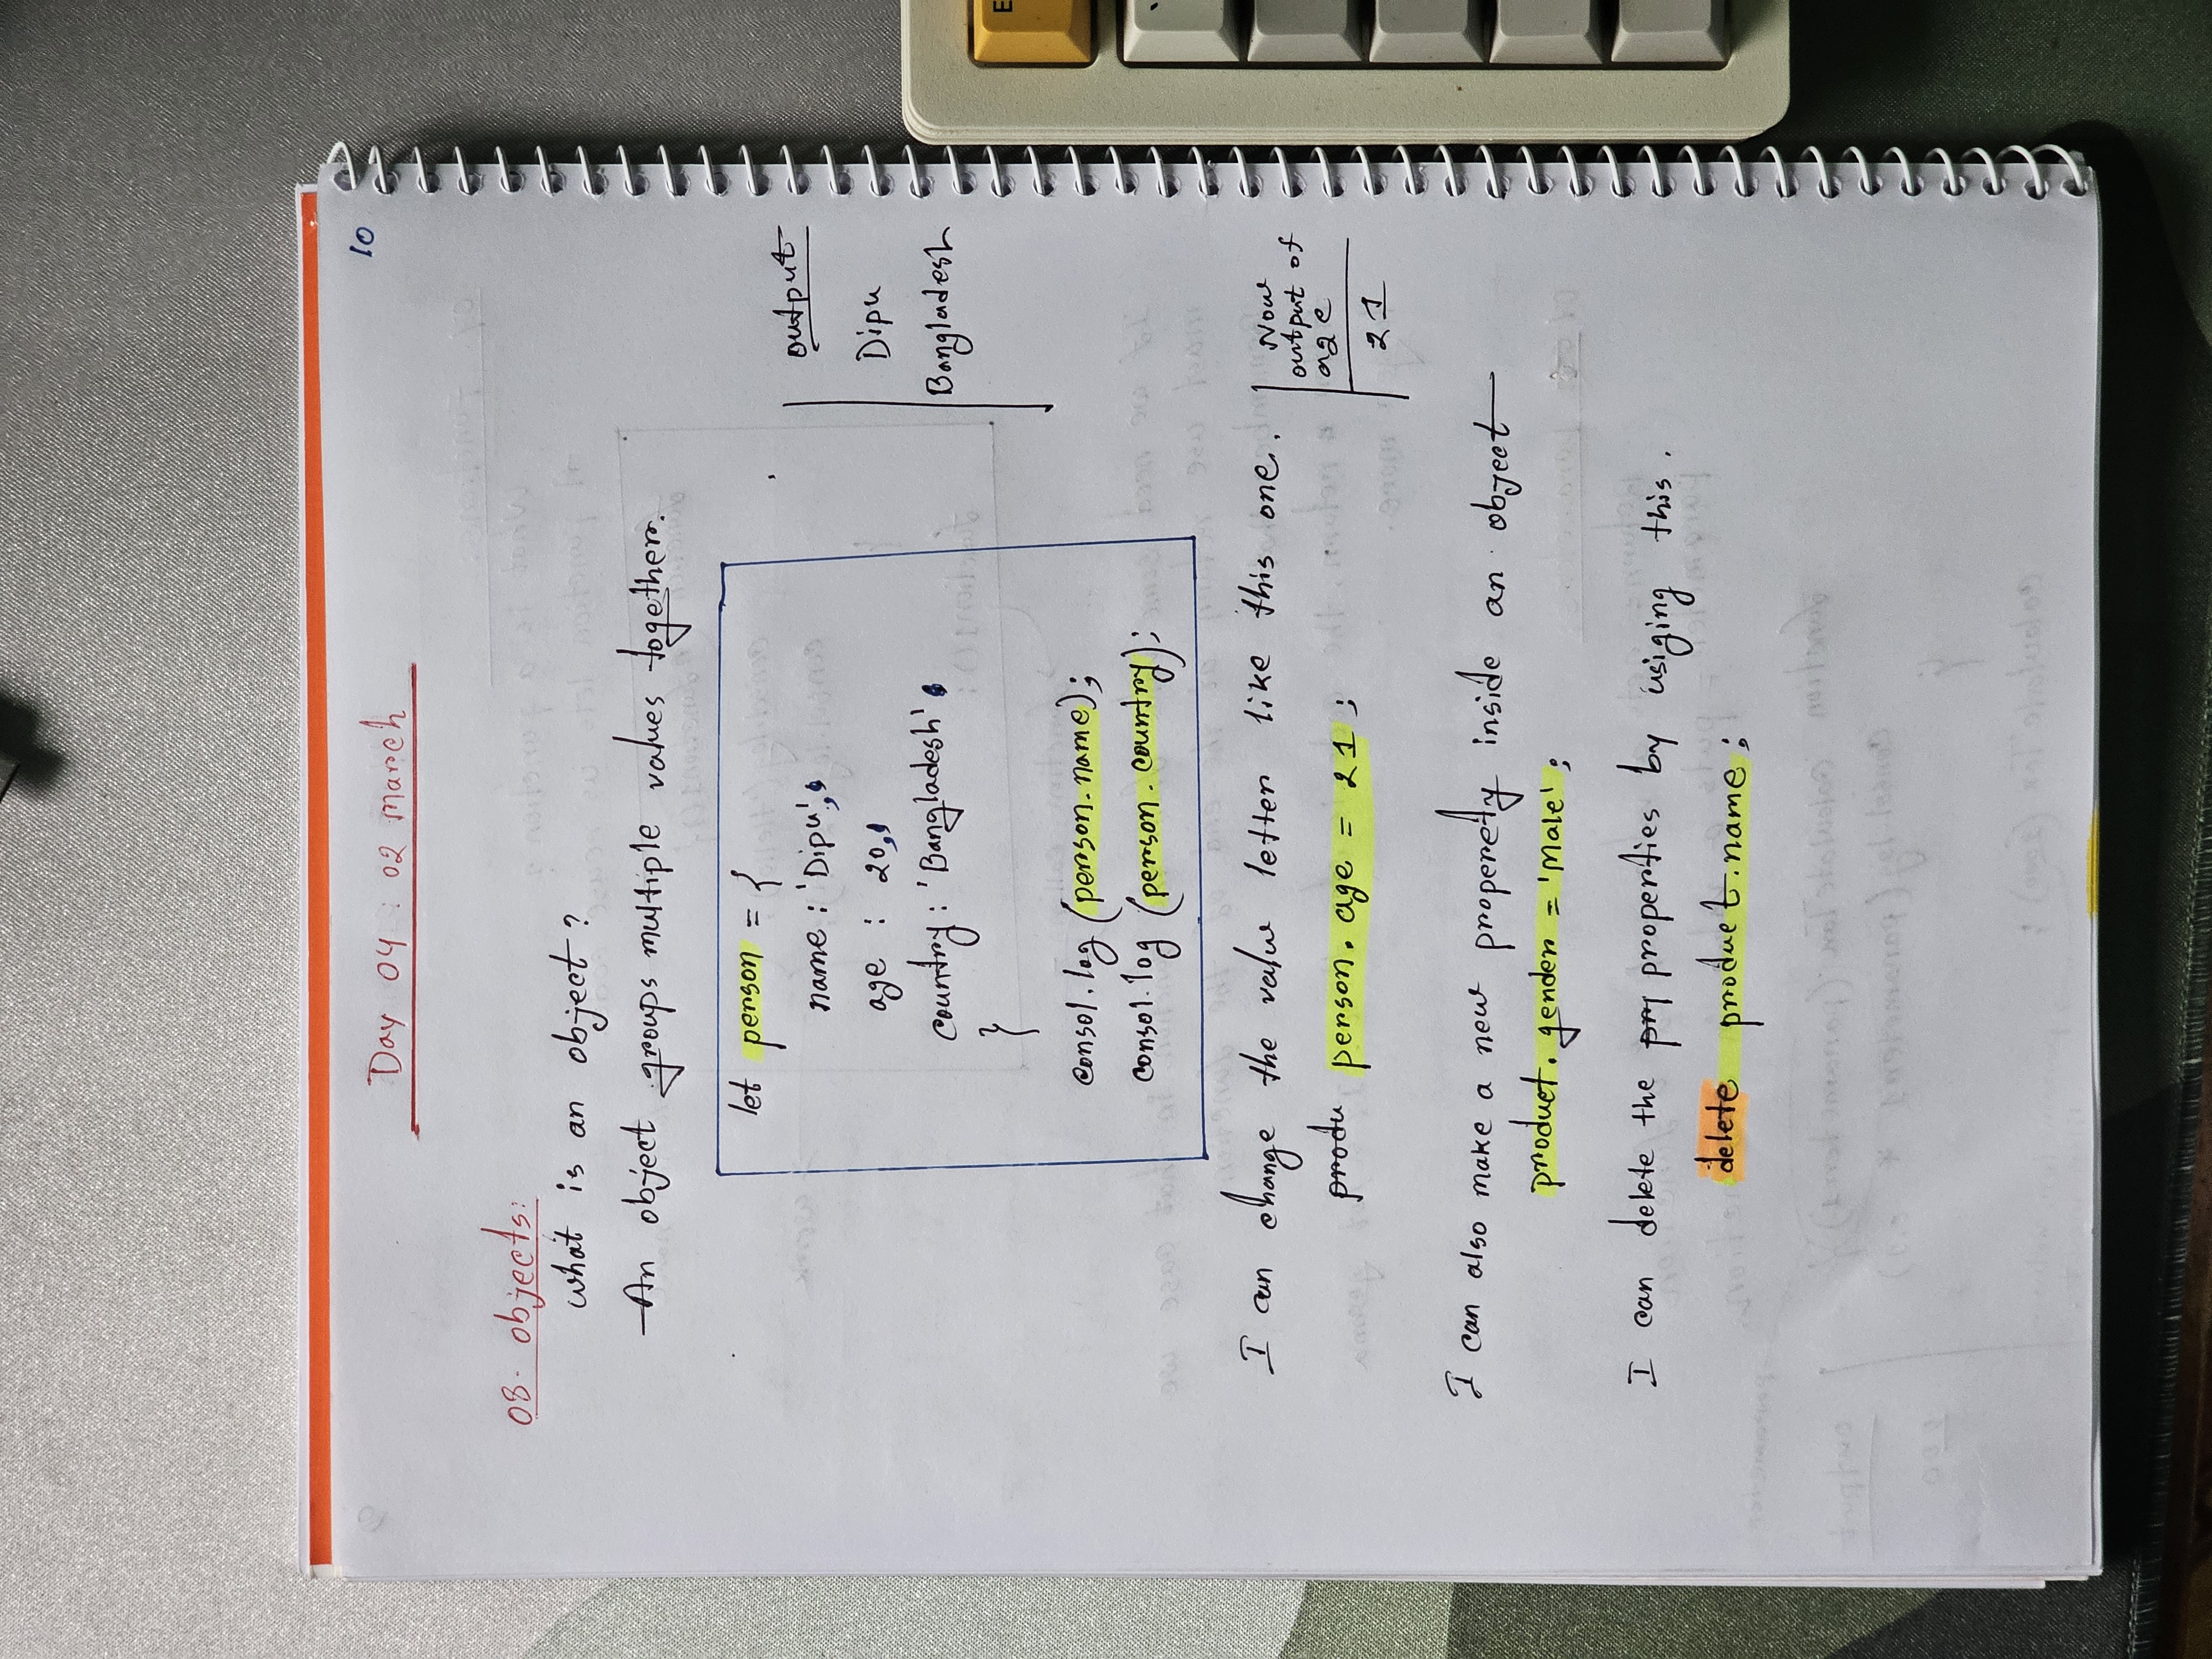 10
Day 04 : 02 march
08. objects:
what is an object?
An object groups multiple values together.
let person = {
name : 'Dipu',
age : 20,
country : 'Bangladesh'
}
consol.log (person.name);
consol.log (person.country);
output
Dipu
Bangladesh
I can change the value letter like this one.
produ person. age = 21 ;
Now
output of
age
21
I can also make a new properety inside an object
product. gender = 'Male' ;
I can delete the pry properties by usiging this.
delete product.name ;
E